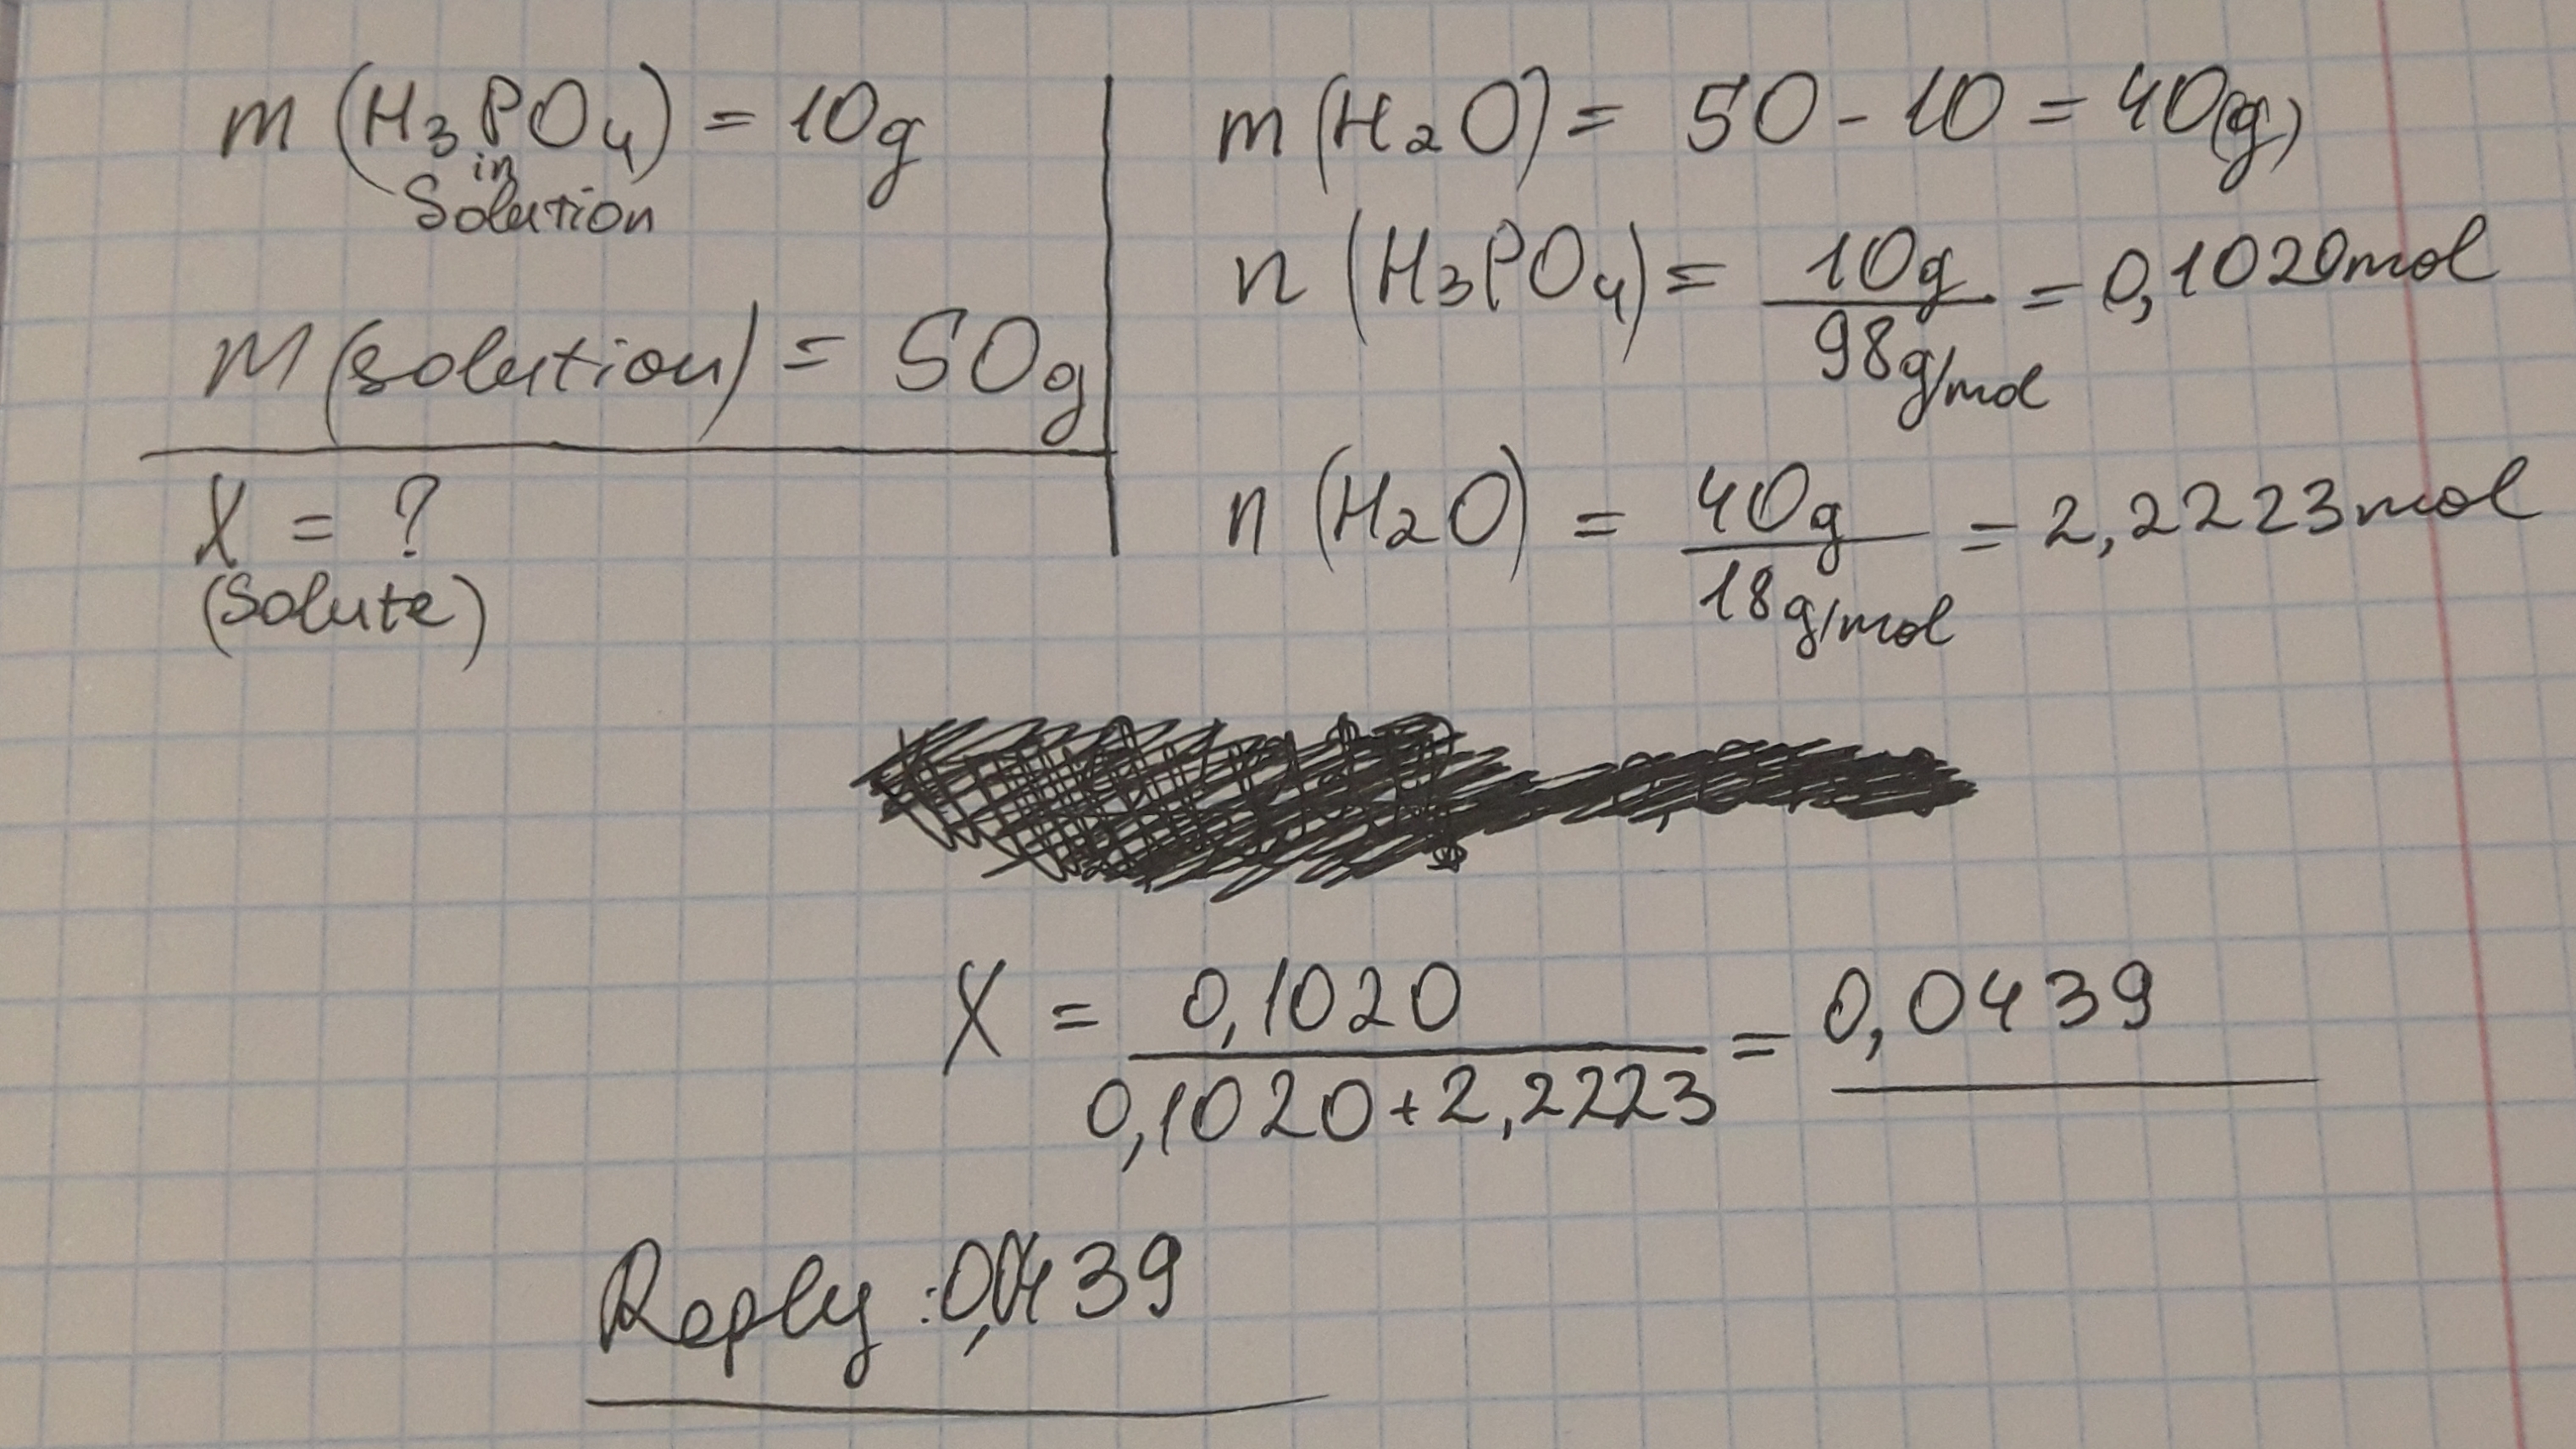 m (H₃PO₄) = 10g
in
Solution
m (solution) = 50g
X = ?
(Solute)
m (H₂O) = 50 - 10 = 40(g)
n (H₃PO₄) = 10g / 98g/mol = 0,1020mol
n (H₂O) = 40g / 18g/mol = 2,2223mol
X = 0,1020 / 0,1020+2,2223 = 0,0439
Reply : 0,0439